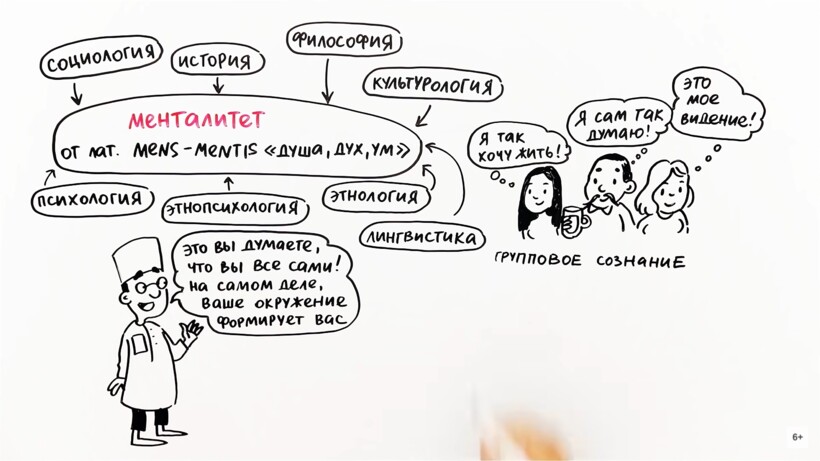 СОЦИОЛОГИЯ
ИСТОРИЯ
ФИЛОСОФИЯ
КУЛЬТУРОЛОГИЯ
МЕНТАЛИТЕТ
ОТ ЛАТ. MENS-MENTIS «ДУША, ДУХ, УМ»
ПСИХОЛОГИЯ
ЭТНОПСИХОЛОГИЯ
ЭТНОЛОГИЯ
ЛИНГВИСТИКА
Я ТАК
ХОЧУ ЖИТЬ!
Я САМ ТАК
ДУМАЮ!
ЭТО
МОЕ
ВИДЕНИЕ!
ГРУППОВОЕ СОЗНАНИЕ
ЭТО ВЫ ДУМАЕТЕ,
ЧТО ВЫ ВСЕ САМИ!
НА САМОМ ДЕЛЕ,
ВАШЕ ОКРУЖЕНИЕ
ФОРМИРУЕТ ВАС
6+